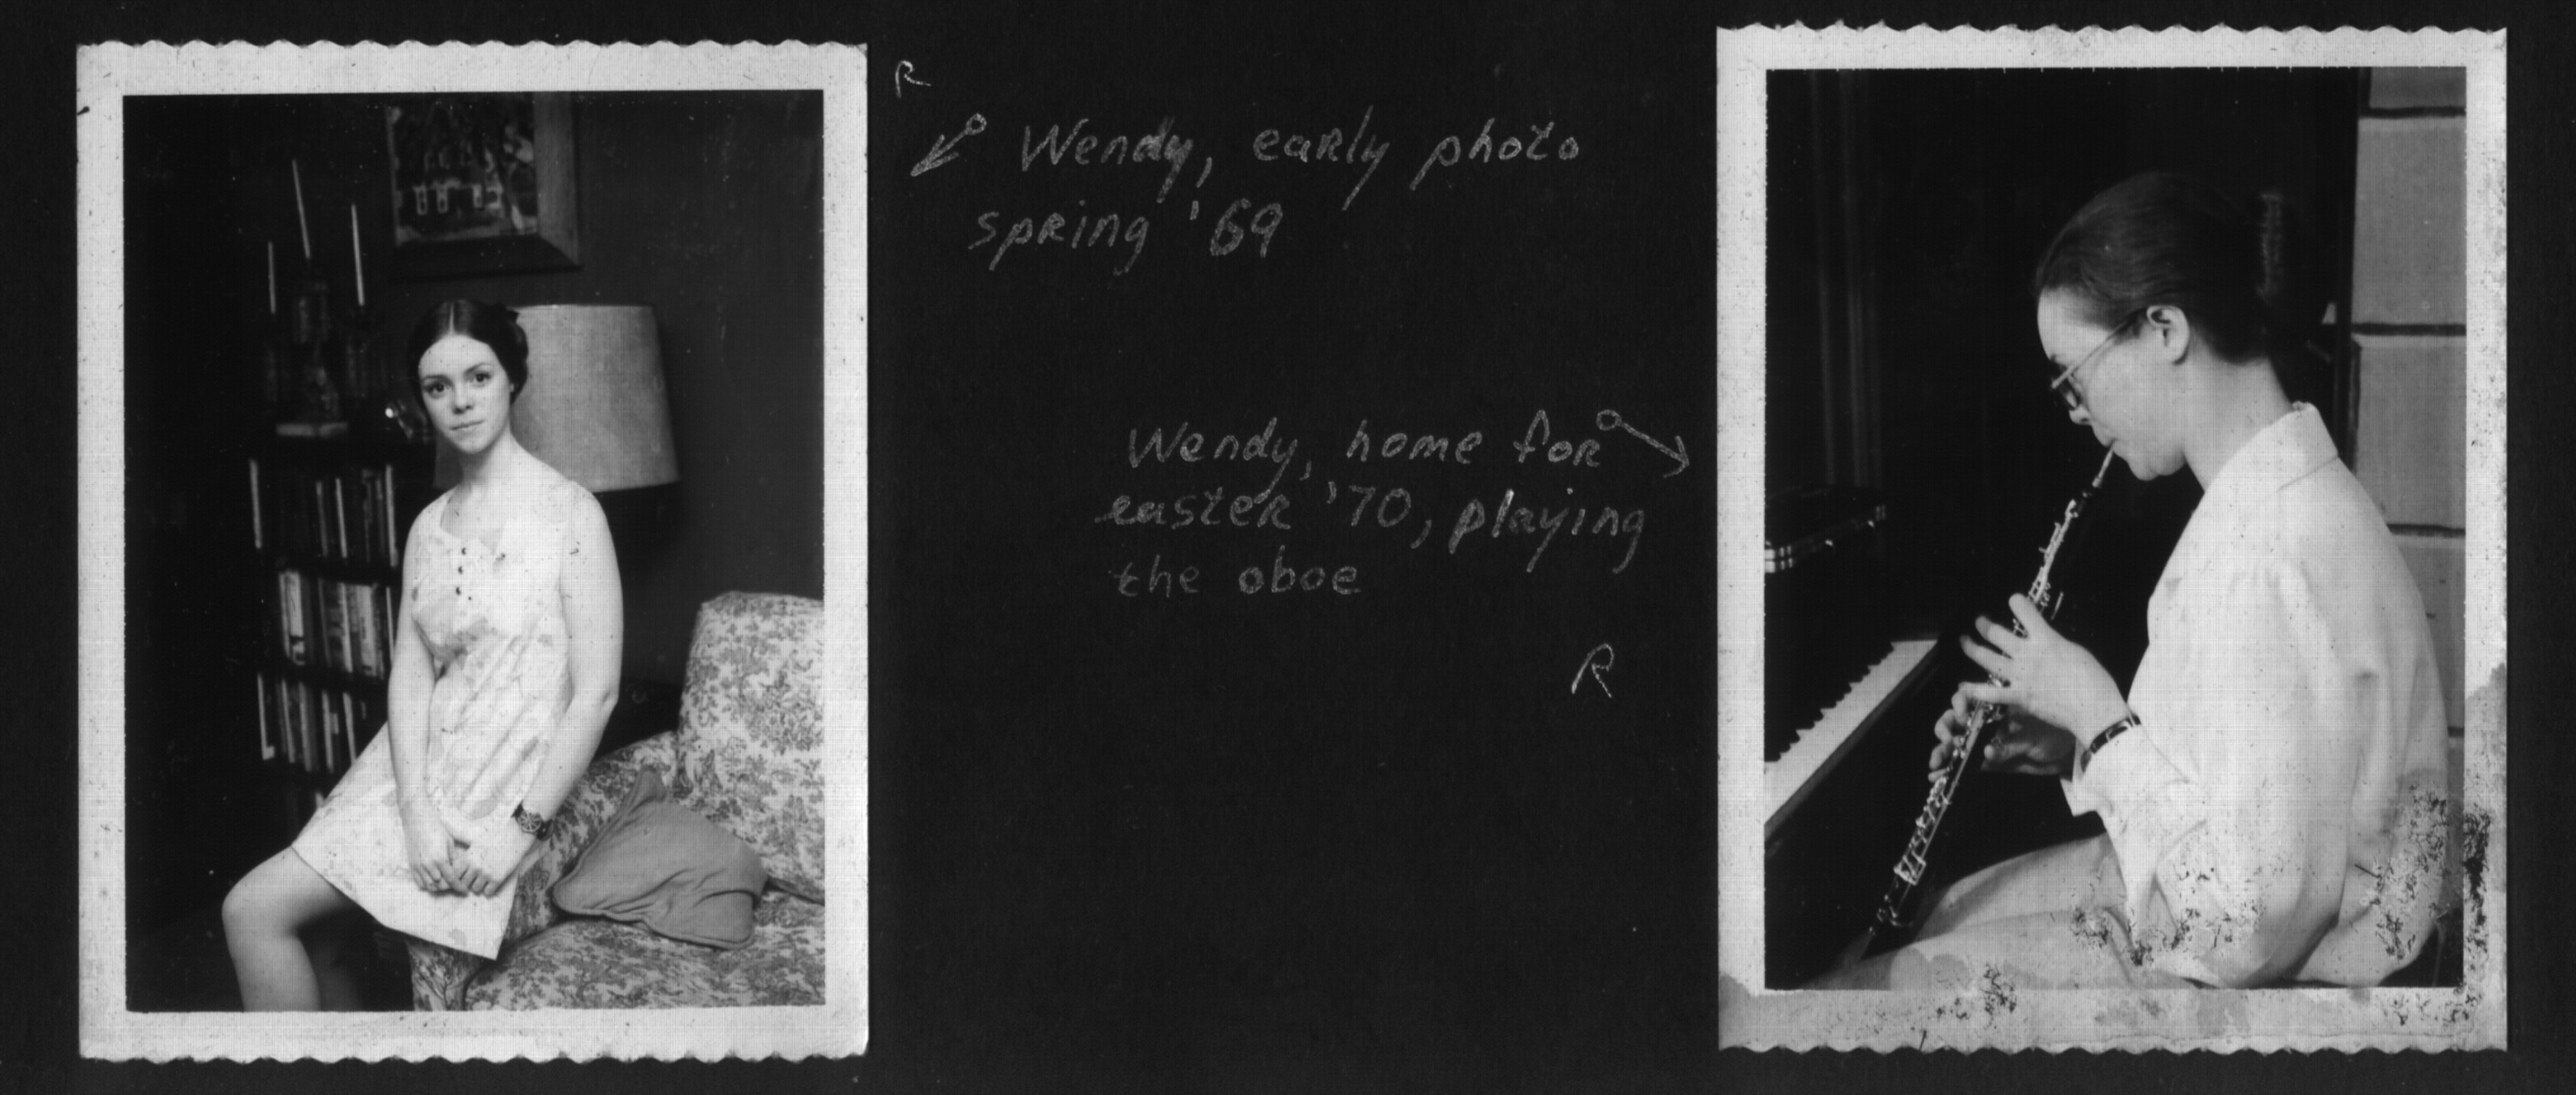 R
Wendy, early photo
spring '69
Wendy, home for
easter '70, playing
the oboe
R